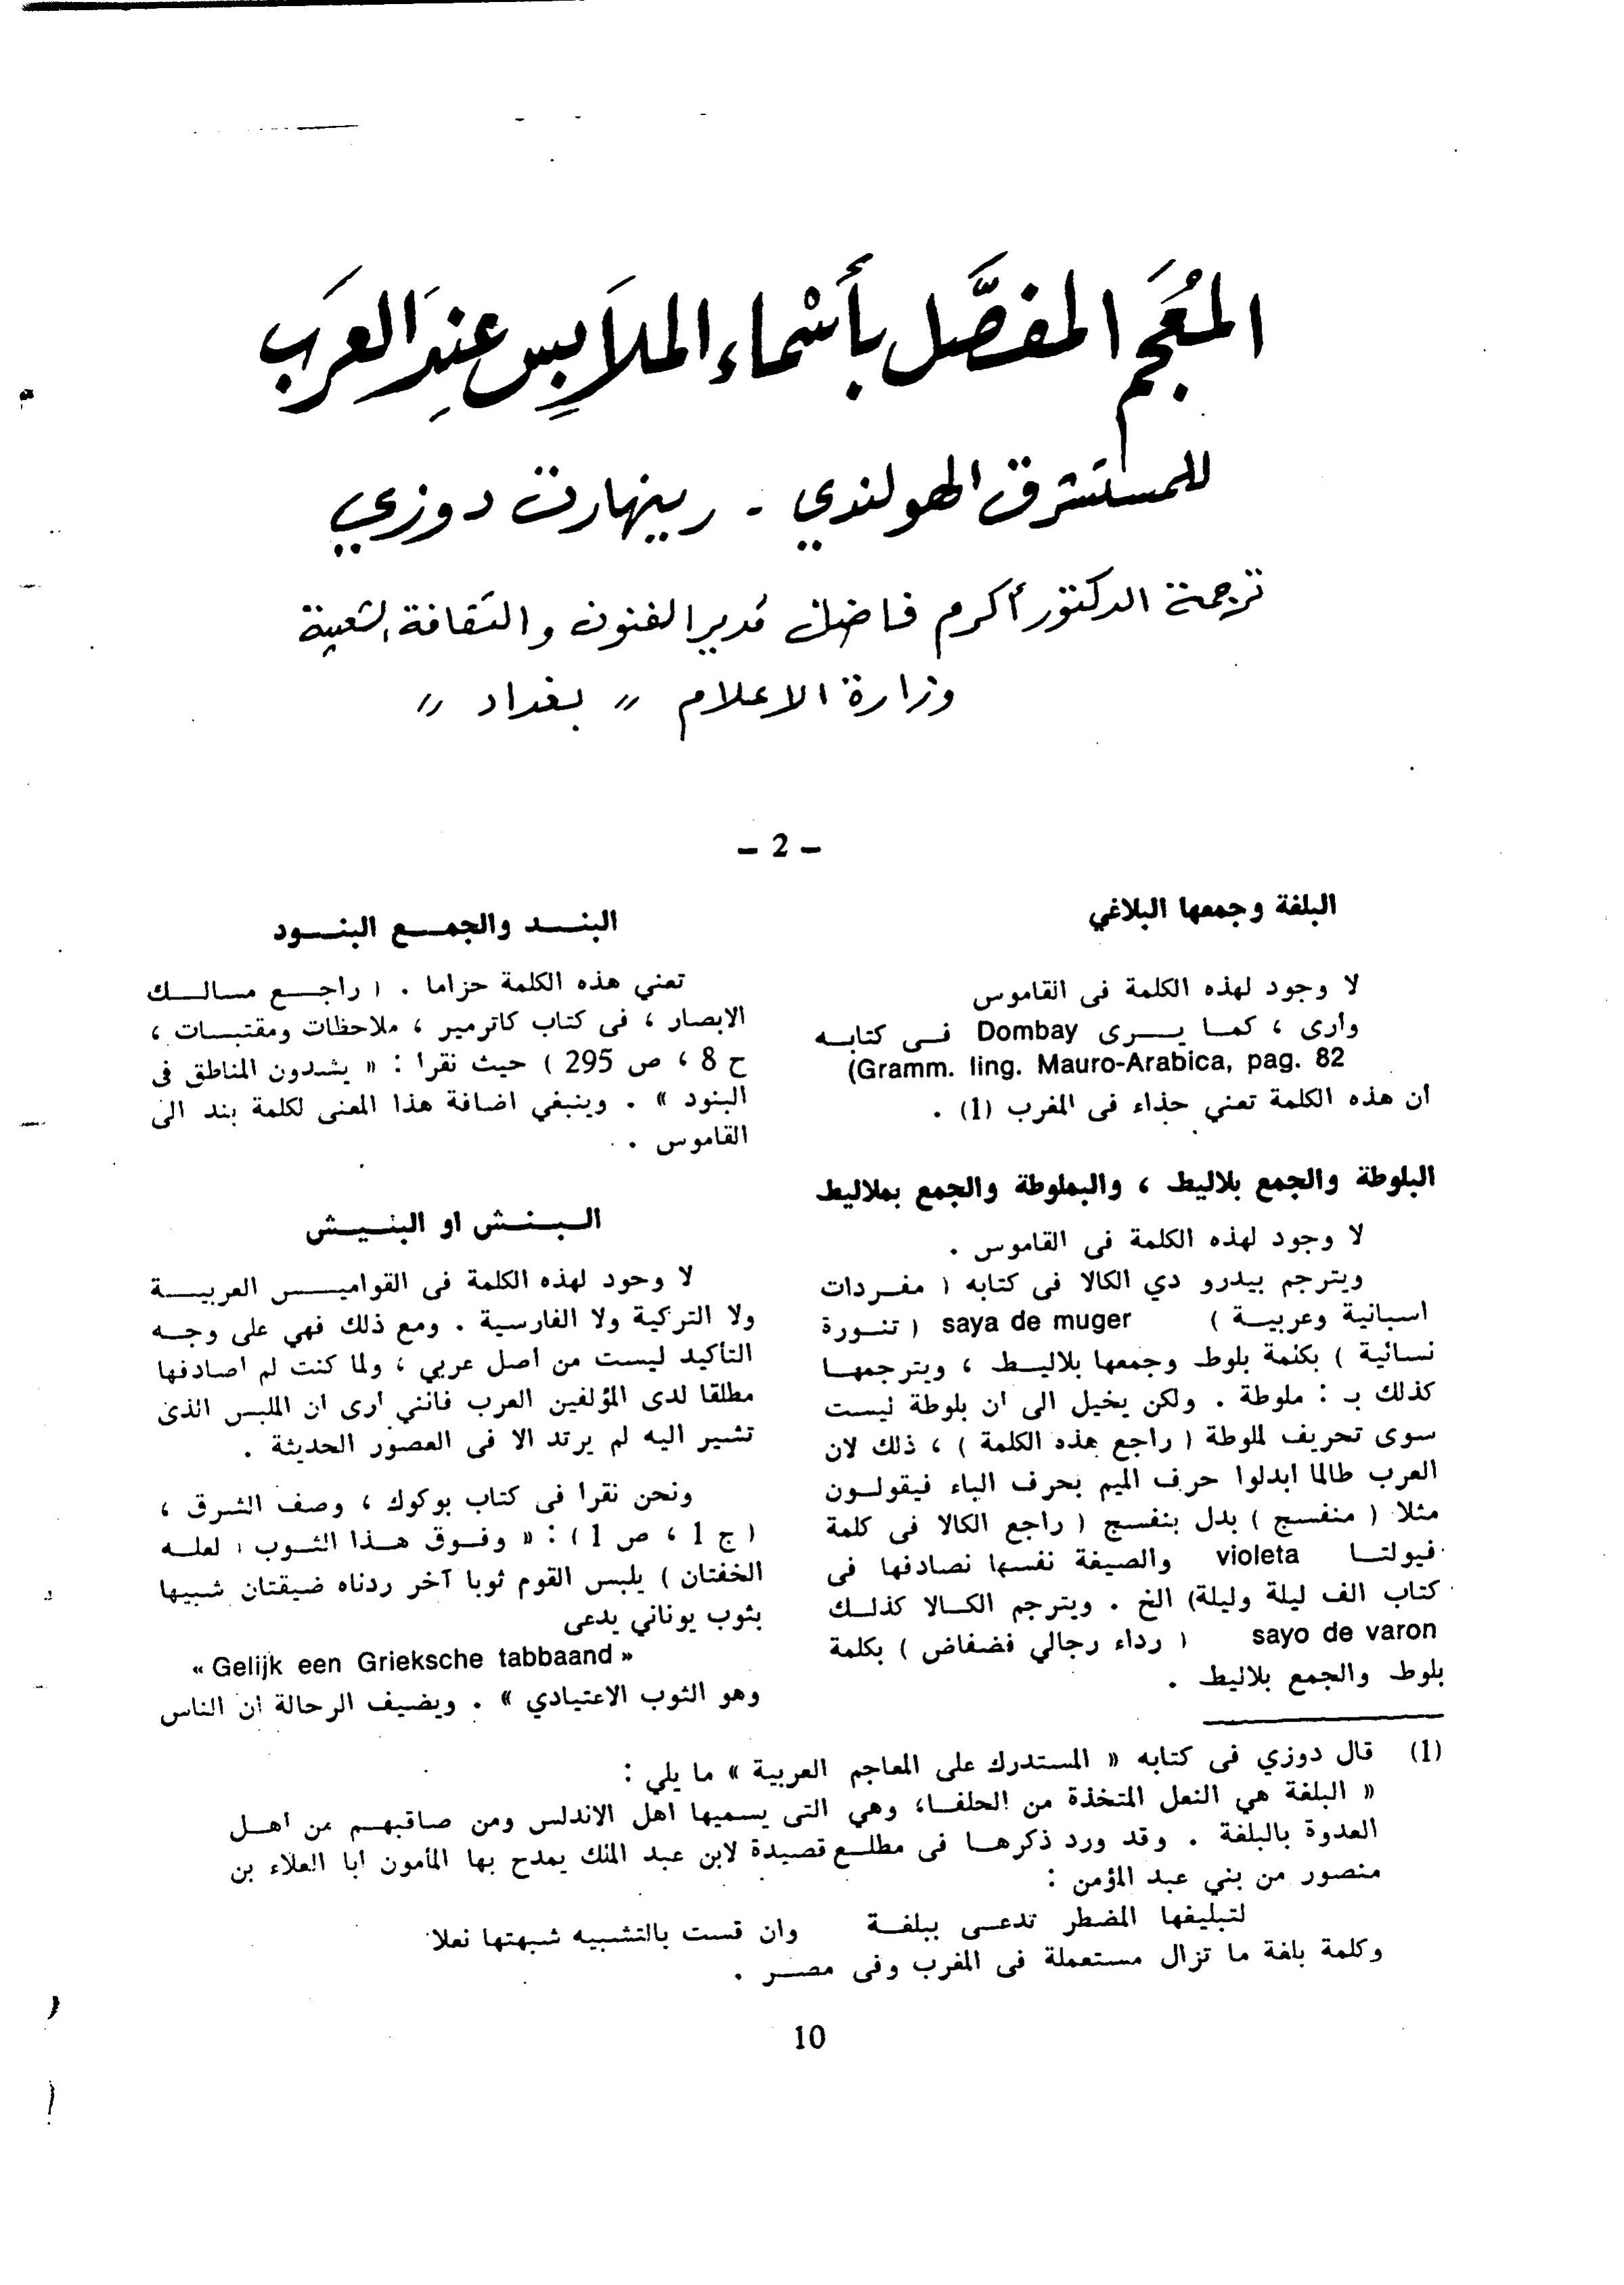 المعُجَم المفصَّل بأسْماء الملاَبِس عِندَ العَرَب
للمستشرق الهولندي - رينهارت دوزي
ترجمة الدكتور أكرم فاضل مدير الفنون والثقافة الشعبية
وزارة الاعلام " بغداد "
- 2 -
البلغة وجمعها البلاغي
لا وجود لهذه الكلمة فى القاموس
وأرى ، كما يرى Dombay فى كتابه
(Gramm. ling. Mauro-Arabica, pag. 82
ان هذه الكلمة تعني حذاء فى المغرب (1) .
البلوطة والجمع بلاليط ، والبملوطة والجمع بملاليط
لا وجود لهذه الكلمة فى القاموس .
ويترجم بيدرو دي الكالا فى كتابه ( مفردات
اسبانية وعربية ) saya de muger ( تنورة
نسائية ) بكلمة بلوط وجمعها بلاليط ، ويترجمها
كذلك بـ : ملوطة . ولكن يخيل الى ان بلوطة ليست
سوى تحريف لملوطة ( راجع هذه الكلمة ) ، ذلك لان
العرب طالما ابدلوا حرف الميم بحرف الباء فيقولون
مثلا ( منفسج ) بدل بنفسج ( راجع الكالا فى كلمة
فيولتا violeta والصيغة نفسها نصادفها فى
كتاب الف ليلة وليلة) الخ . ويترجم الكالا كذلك
sayo de varon ( رداء رجالي فضفاض ) بكلمة
بلوط والجمع بلاليط .
البند والجمع البنود
تعني هذه الكلمة حزاما . ( راجع مسالك
الابصار ، فى كتاب كاترمير ، ملاحظات ومقتبسات ،
ح 8 ، ص 295 ) حيث نقرا : « يشدون المناطق فى
البنود » . وينبغي اضافة هذا المعنى لكلمة بند الى
القاموس .
البنش او البنيش
لا وجود لهذه الكلمة فى القواميس العربية
ولا التركية ولا الفارسية . ومع ذلك فهي على وجه
التأكيد ليست من اصل عربي ، ولما كنت لم اصادفها
مطلقا لدى المؤلفين العرب فانني أرى ان الملبس الذى
تشير اليه لم يرتد الا فى العصور الحديثة .
ونحن نقرا فى كتاب بوكوك ، وصف الشرق ،
( ج 1 ، ص 1 ) : « وفوق هذا الثوب ( لعله
الخفتان ) يلبس القوم ثوبا آخر ردناه ضيقتان شبيها
بثوب يوناني يدعى
« Gelijk een Grieksche tabbaand »
وهو الثوب الاعتيادي » . ويضيف الرحالة ان الناس
(1) قال دوزي فى كتابه « المستدرك على المعاجم العربية » ما يلي :
« البلغة هي النعل المتخذة من الحلفا، وهي التى يسميها اهل الاندلس ومن صاقبهم من اهل
العدوة بالبلغة . وقد ورد ذكرها فى مطلع قصيدة لابن عبد الملك يمدح بها المأمون ابا العلاء بن
منصور من بني عبد المؤمن :
لتبليغها المضطر تدعى ببلغة وان قست بالتشبيه شبهتها نعلا
وكلمة بلغة ما تزال مستعملة فى المغرب وفى مصر .
10